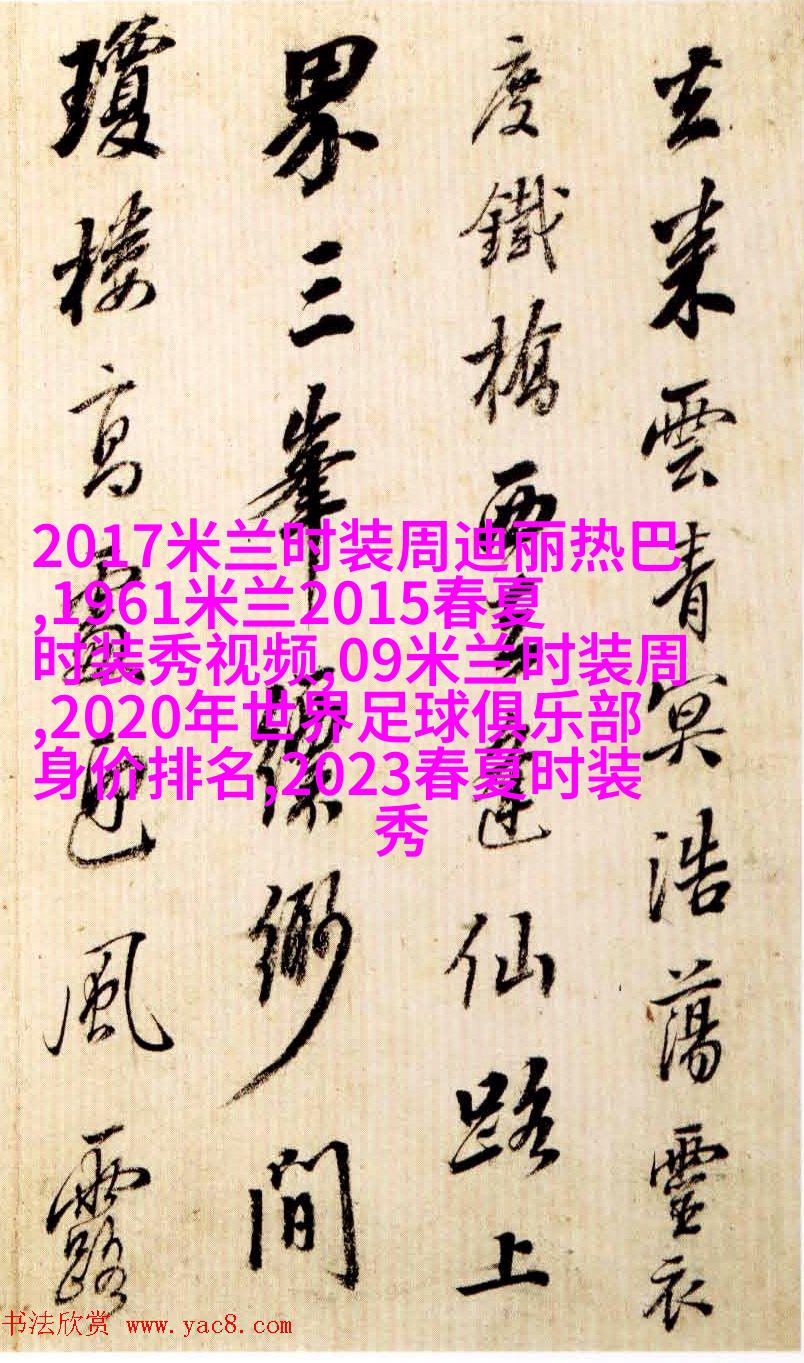 去來雲青冥浩蕩靈衣
度鐵橋西仙路上
界三峯縹緲間
瓊樓高風露
2017米兰时装周迪丽热巴
,1961米兰2015春夏
时装秀视频,09米兰时装周
,2020年世界足球俱乐部
身价排名,2023春夏时装
秀
书法欣赏 www.yac8.com